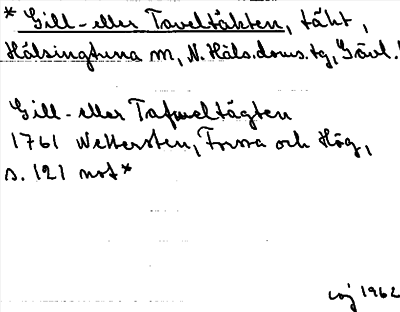 * Gill- eller Taveltäkten, täkt,
Hälsingtuna sn, N. Häls. doms. tg, Gävl. l
Gill- eller Tafweltägten
1761 Wettersten, Forssa och Hög,
s. 121 not*
1962